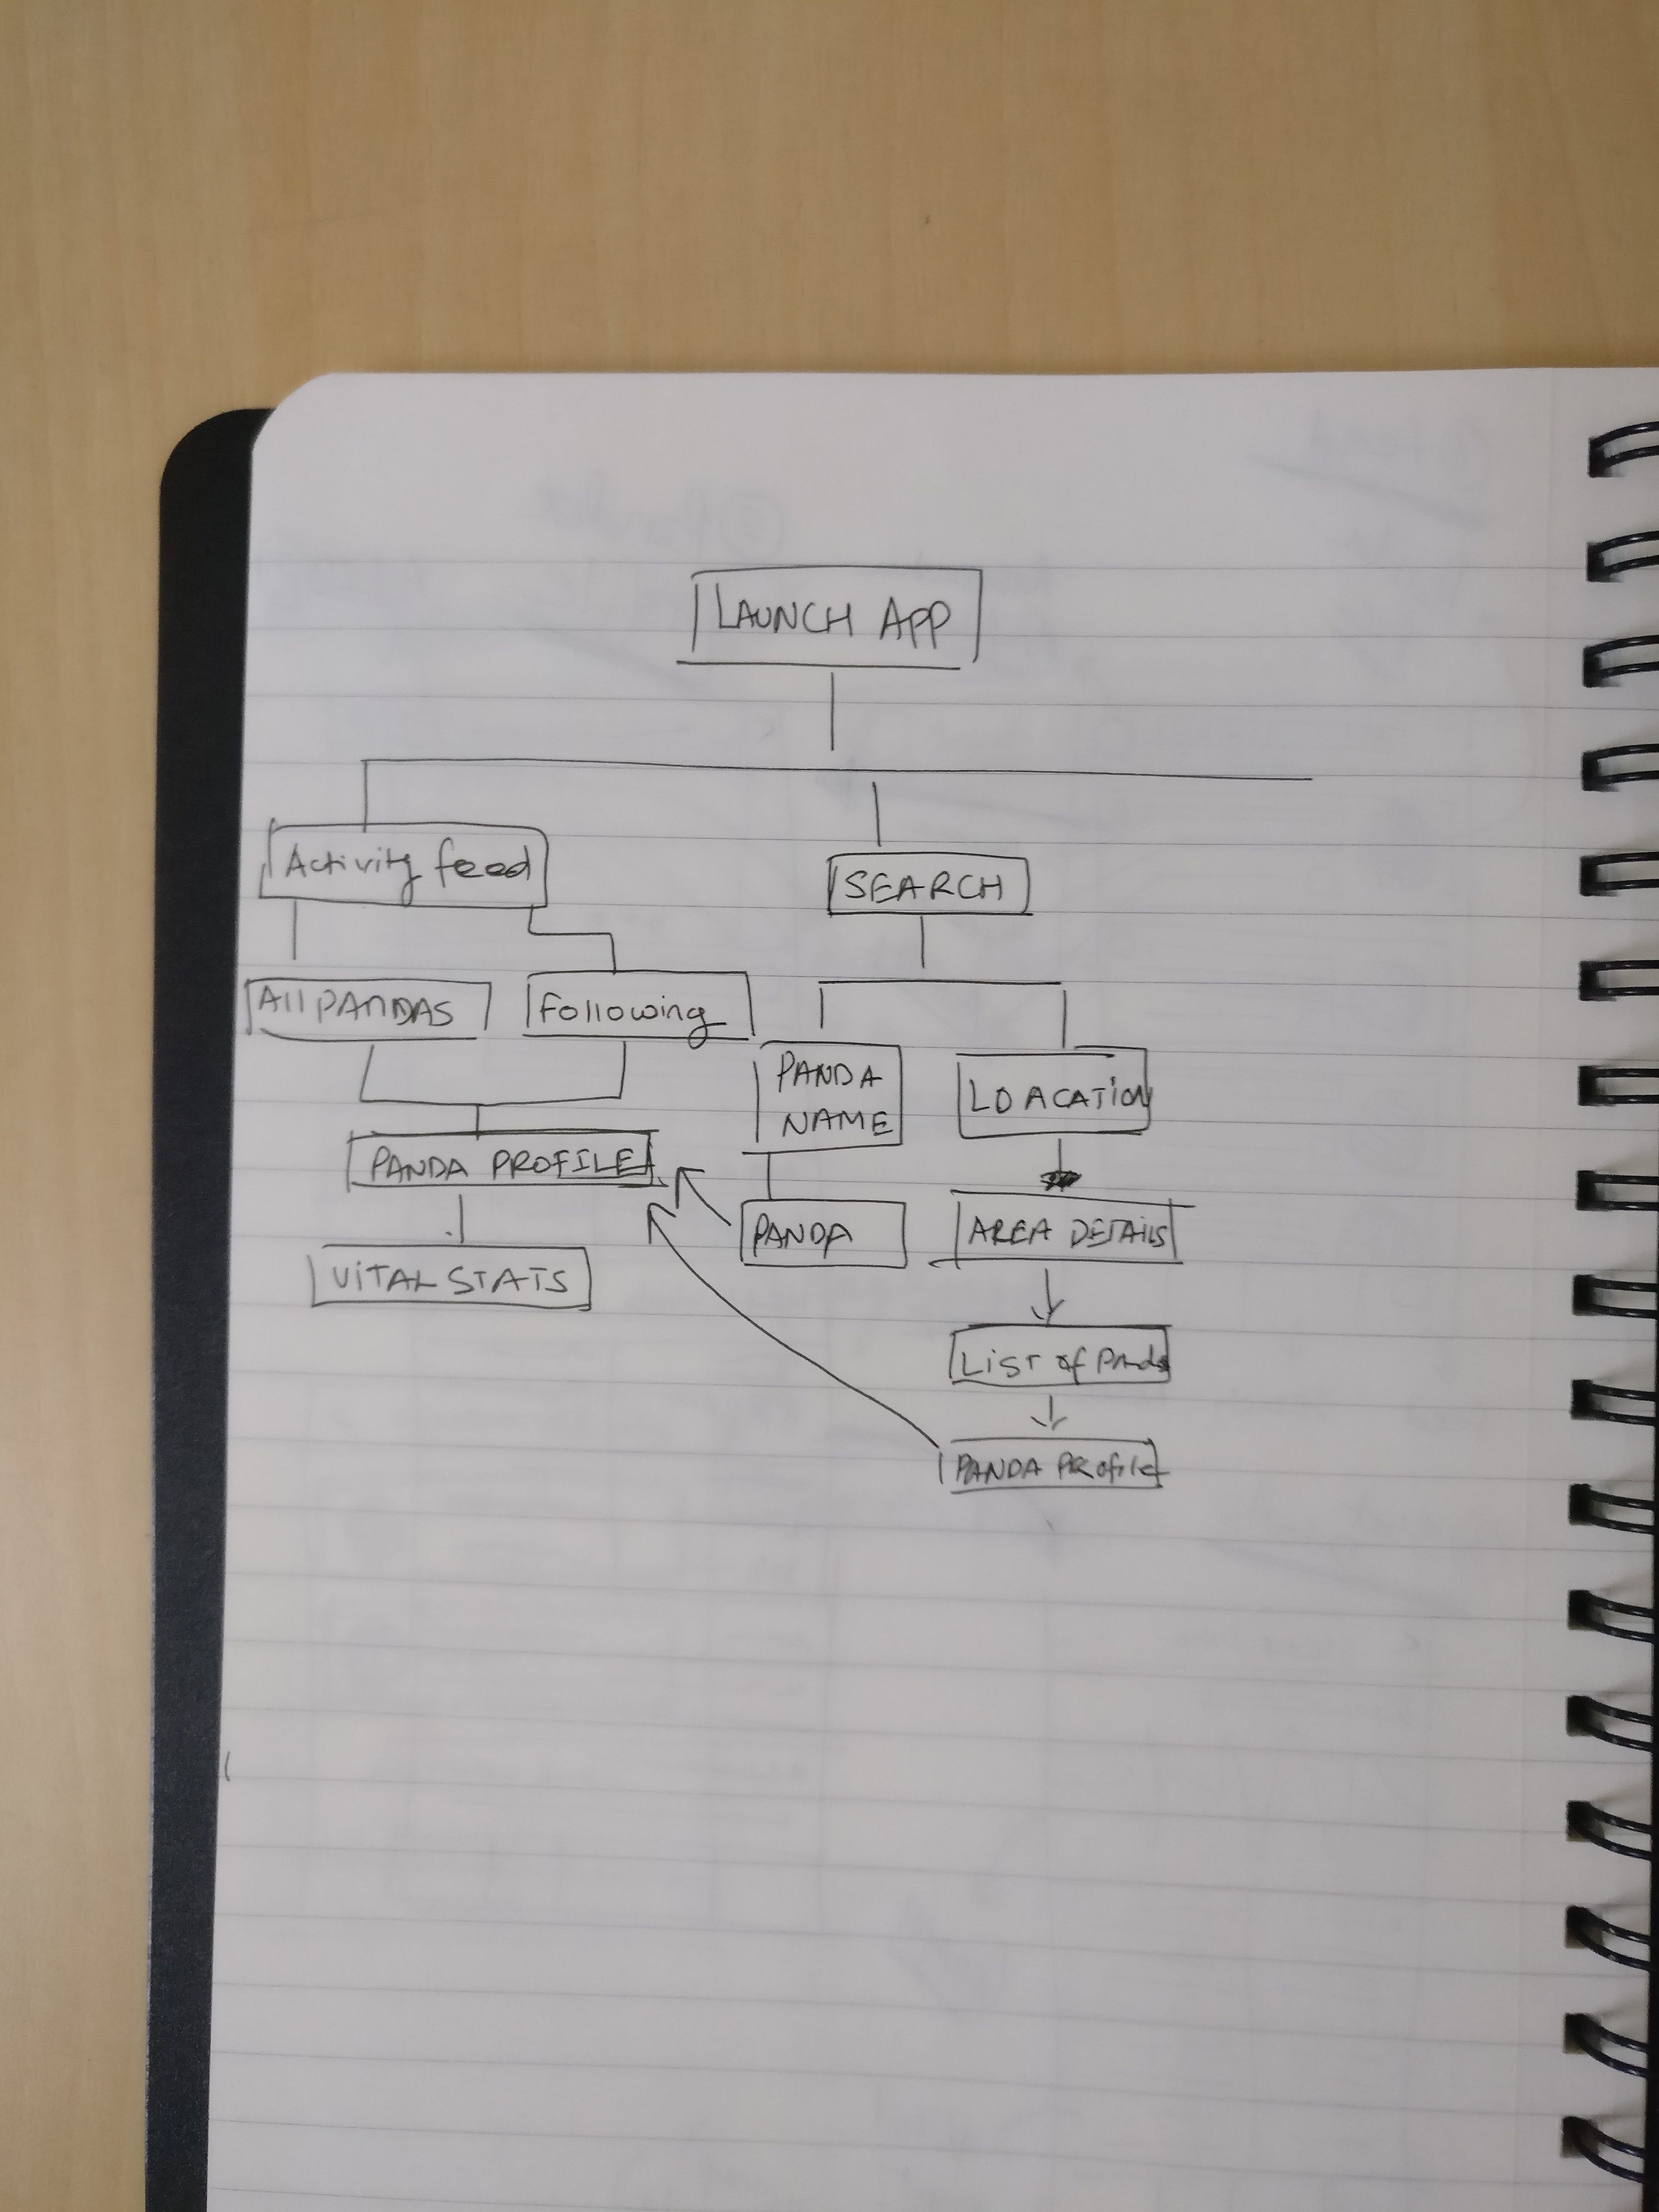 LAUNCH APP
Activity feed
SEARCH
All PANDAS
Following
PANDA
NAME
LOACATION
PANDA PROFILE
PANDA
AREA DETAILS
VITAL STATS
LIST of Panda
PANDA PROfile